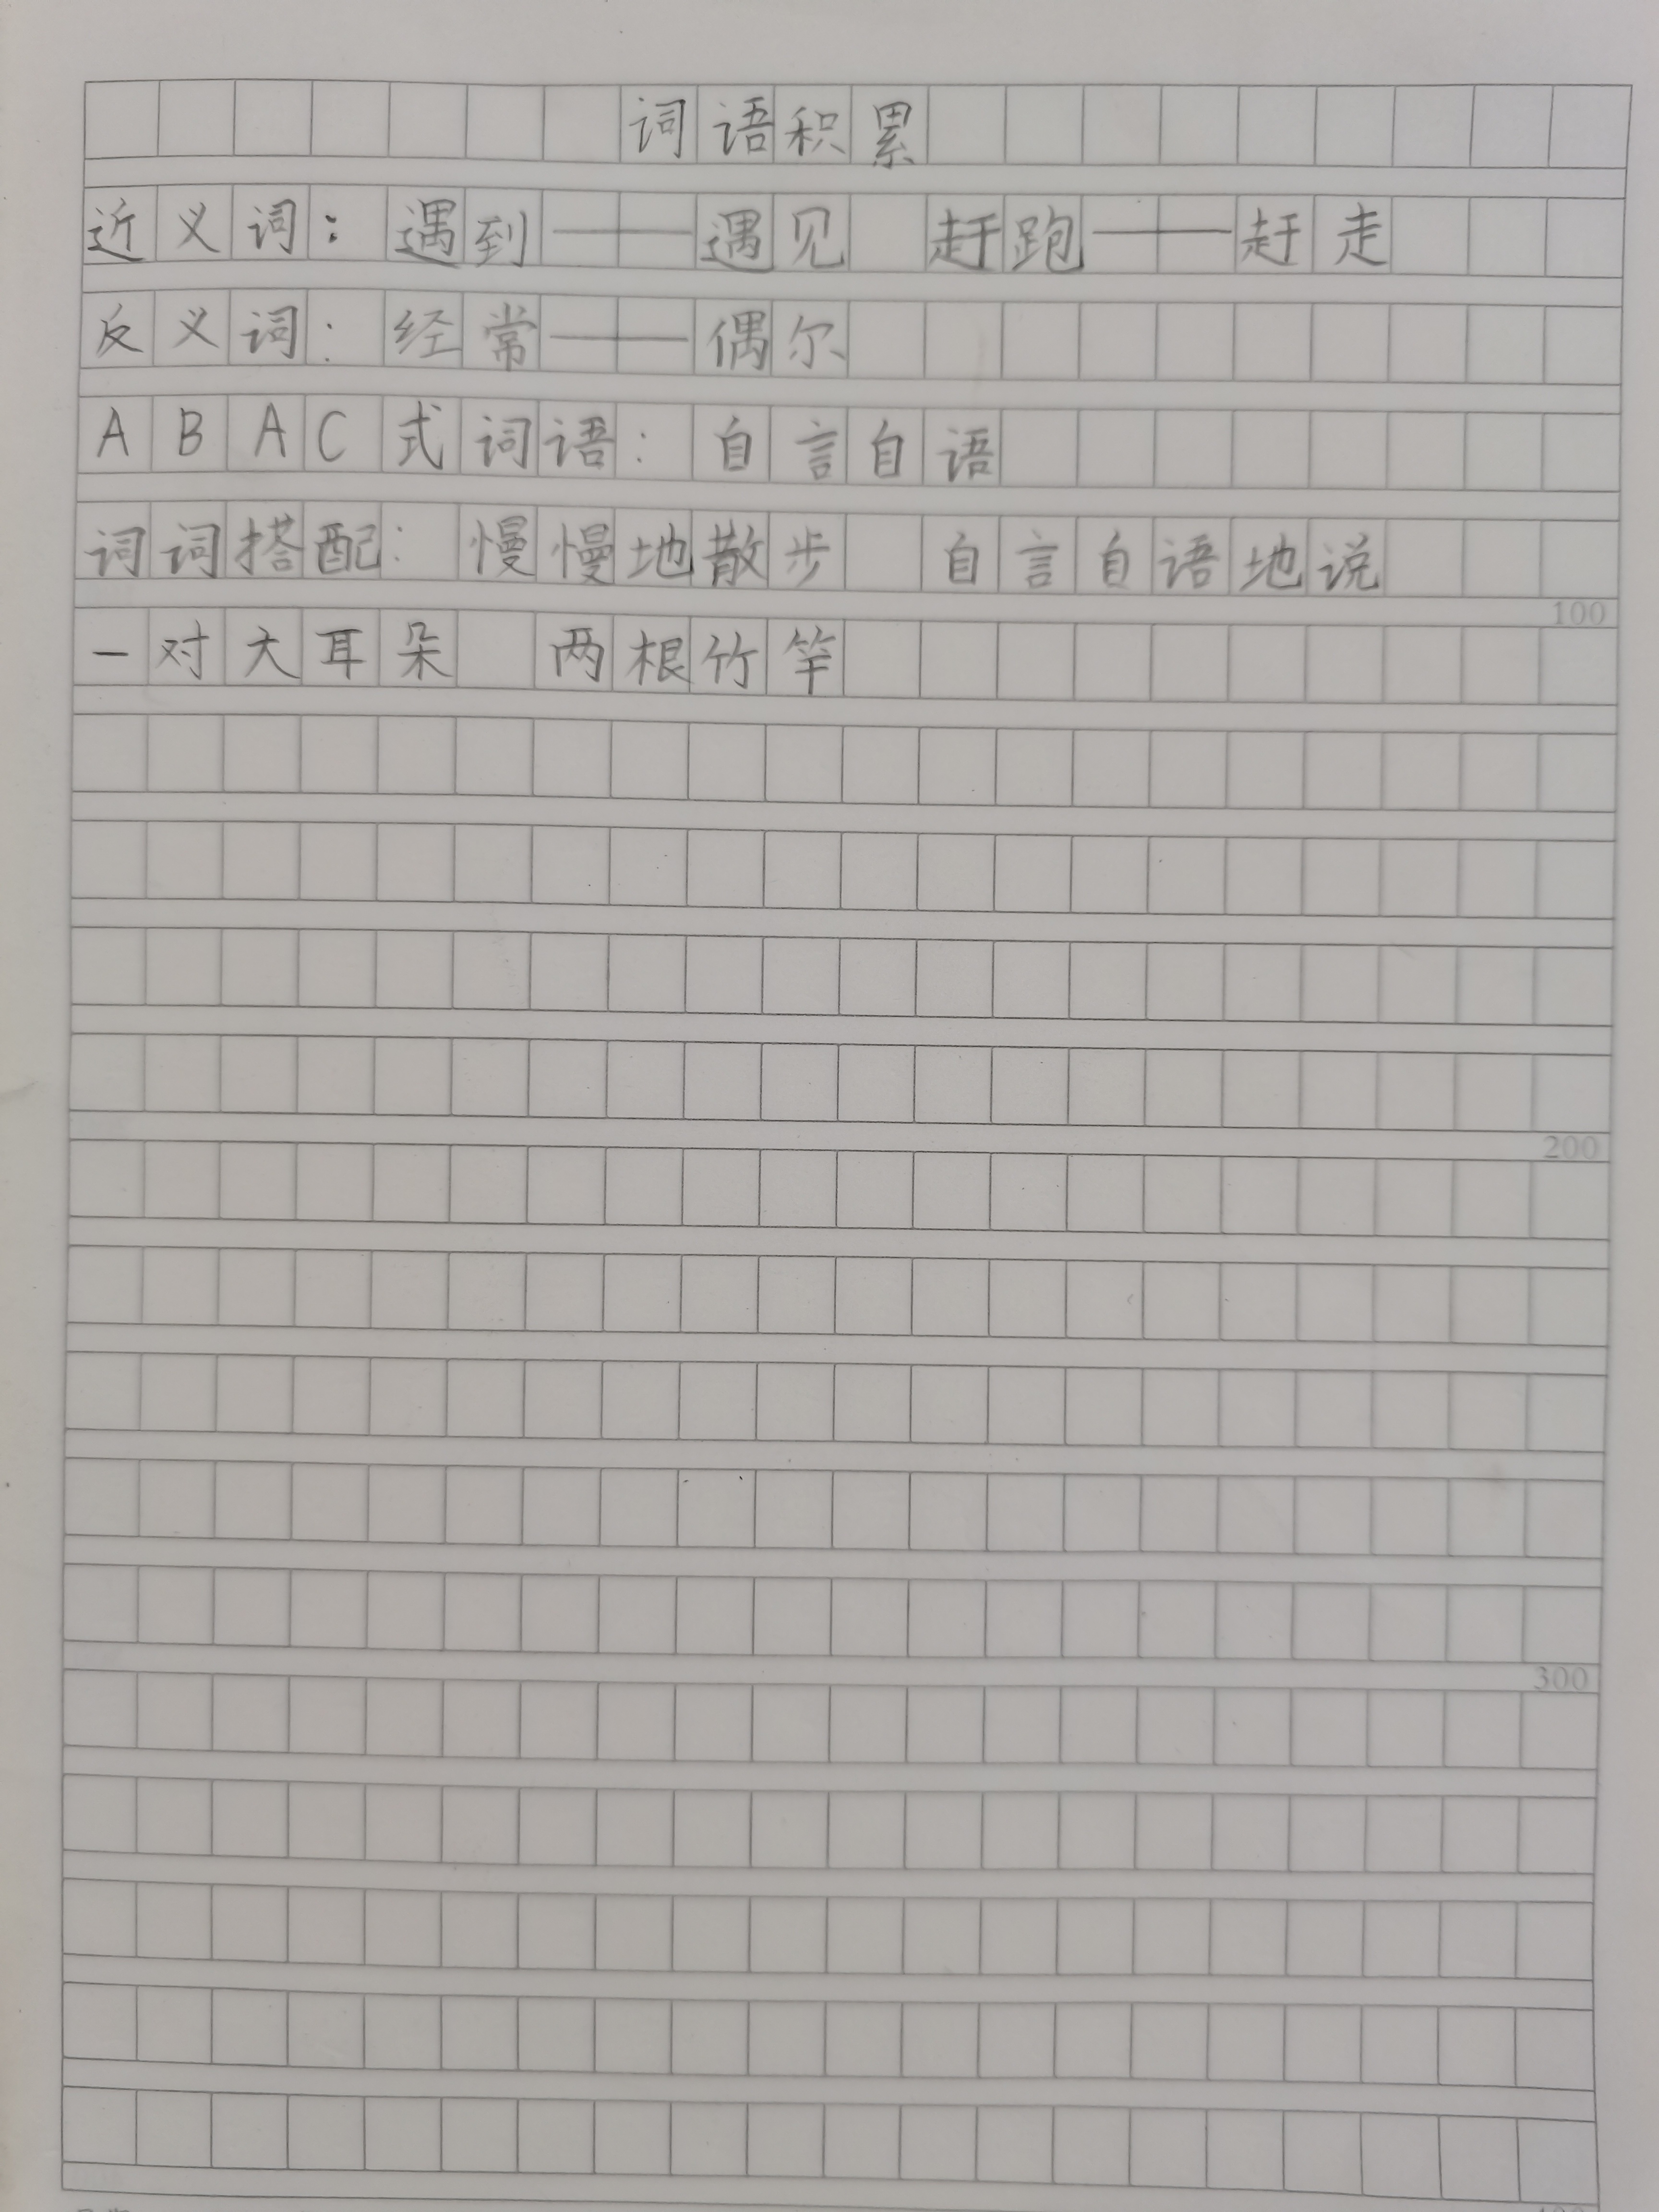 词语积累
近义词：遇到——遇见 赶跑——赶走
反义词：经常——偶尔
ABAC式词语：自言自语
词词搭配：慢慢地散步 自言自语地说
100
一对大耳朵 两根竹竿
200
300